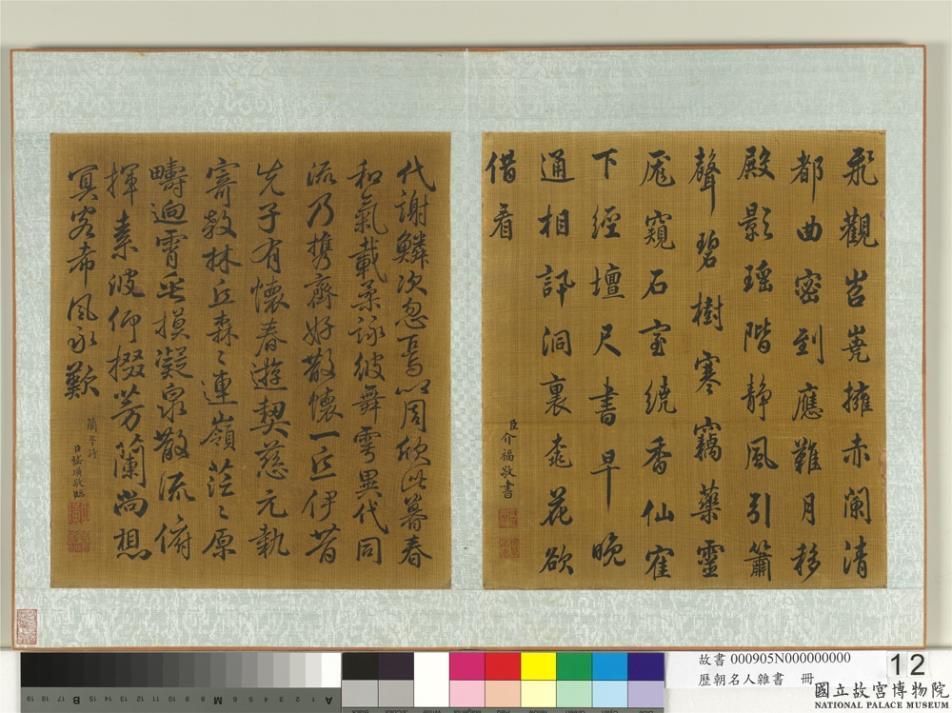 飛觀岧嶤擁赤闌清
都曲密到應難月移
殿影瑤階靜風引簫
聲碧樹寒竊藥靈
妃窺石室繞香仙寉
下經壇尺書早晚
通相訊洞裏桃花欲
借看
臣介福敬書
代謝鱗次忽焉以周欣此暮春
和氣載柔詠彼舞雩異代同
流乃攜齊好散懷一丘伊昔
先子有懷春遊契茲言執
寄敖林丘森〻連嶺茫〻原
疇迥霄垂霧凝泉散流俯
揮素波仰掇芳蘭尚想
冥客希風永歎
蘭亭詩
故書 000905N000000000
歷朝名人雜書 冊
12
國立故宮博物院
NATIONAL PALACE MUSEUM
19 18 17 16 15 B 13 12 11 10 9 8 M 6 5 4 3 2 1 A